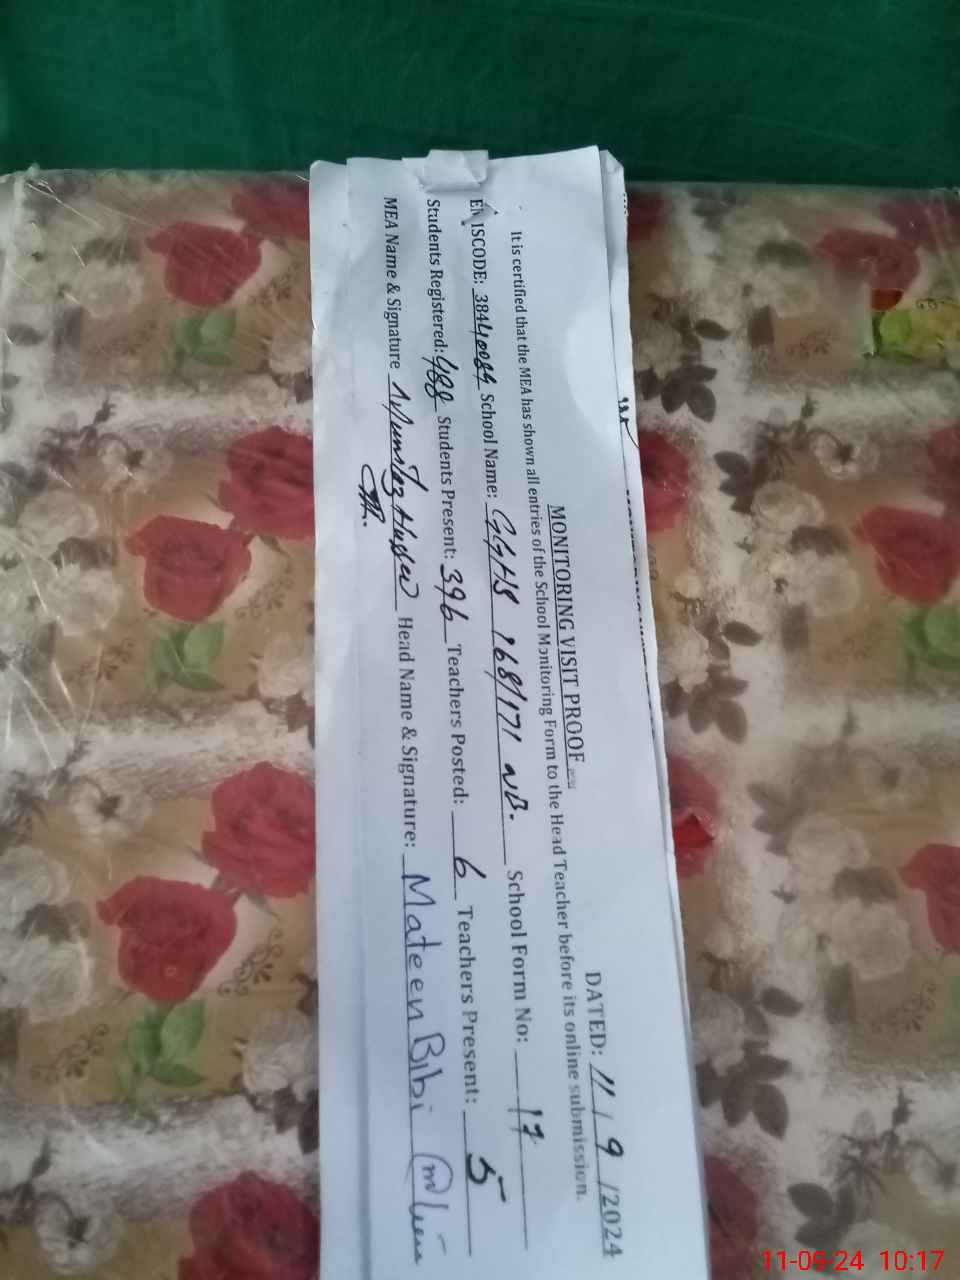 MONITORING VISIT PROOF
DATED: 11 / 9 /2024
It is certified that the MEA has shown all entries of the School Monitoring Form to the Head Teacher before its online submission.
EMISCODE: 38440084 School Name: GGHS 168/171 NB. School Form No: 17
Students Registered: 488 Students Present: 396 Teachers Posted: 6 Teachers Present: 5
MEA Name & Signature Head Name & Signature: Mateen Bibi
11-09-24 10:17